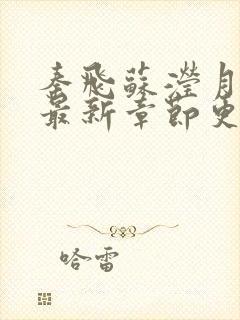 秦飛蘇瀅月
最新章節更
哈雷